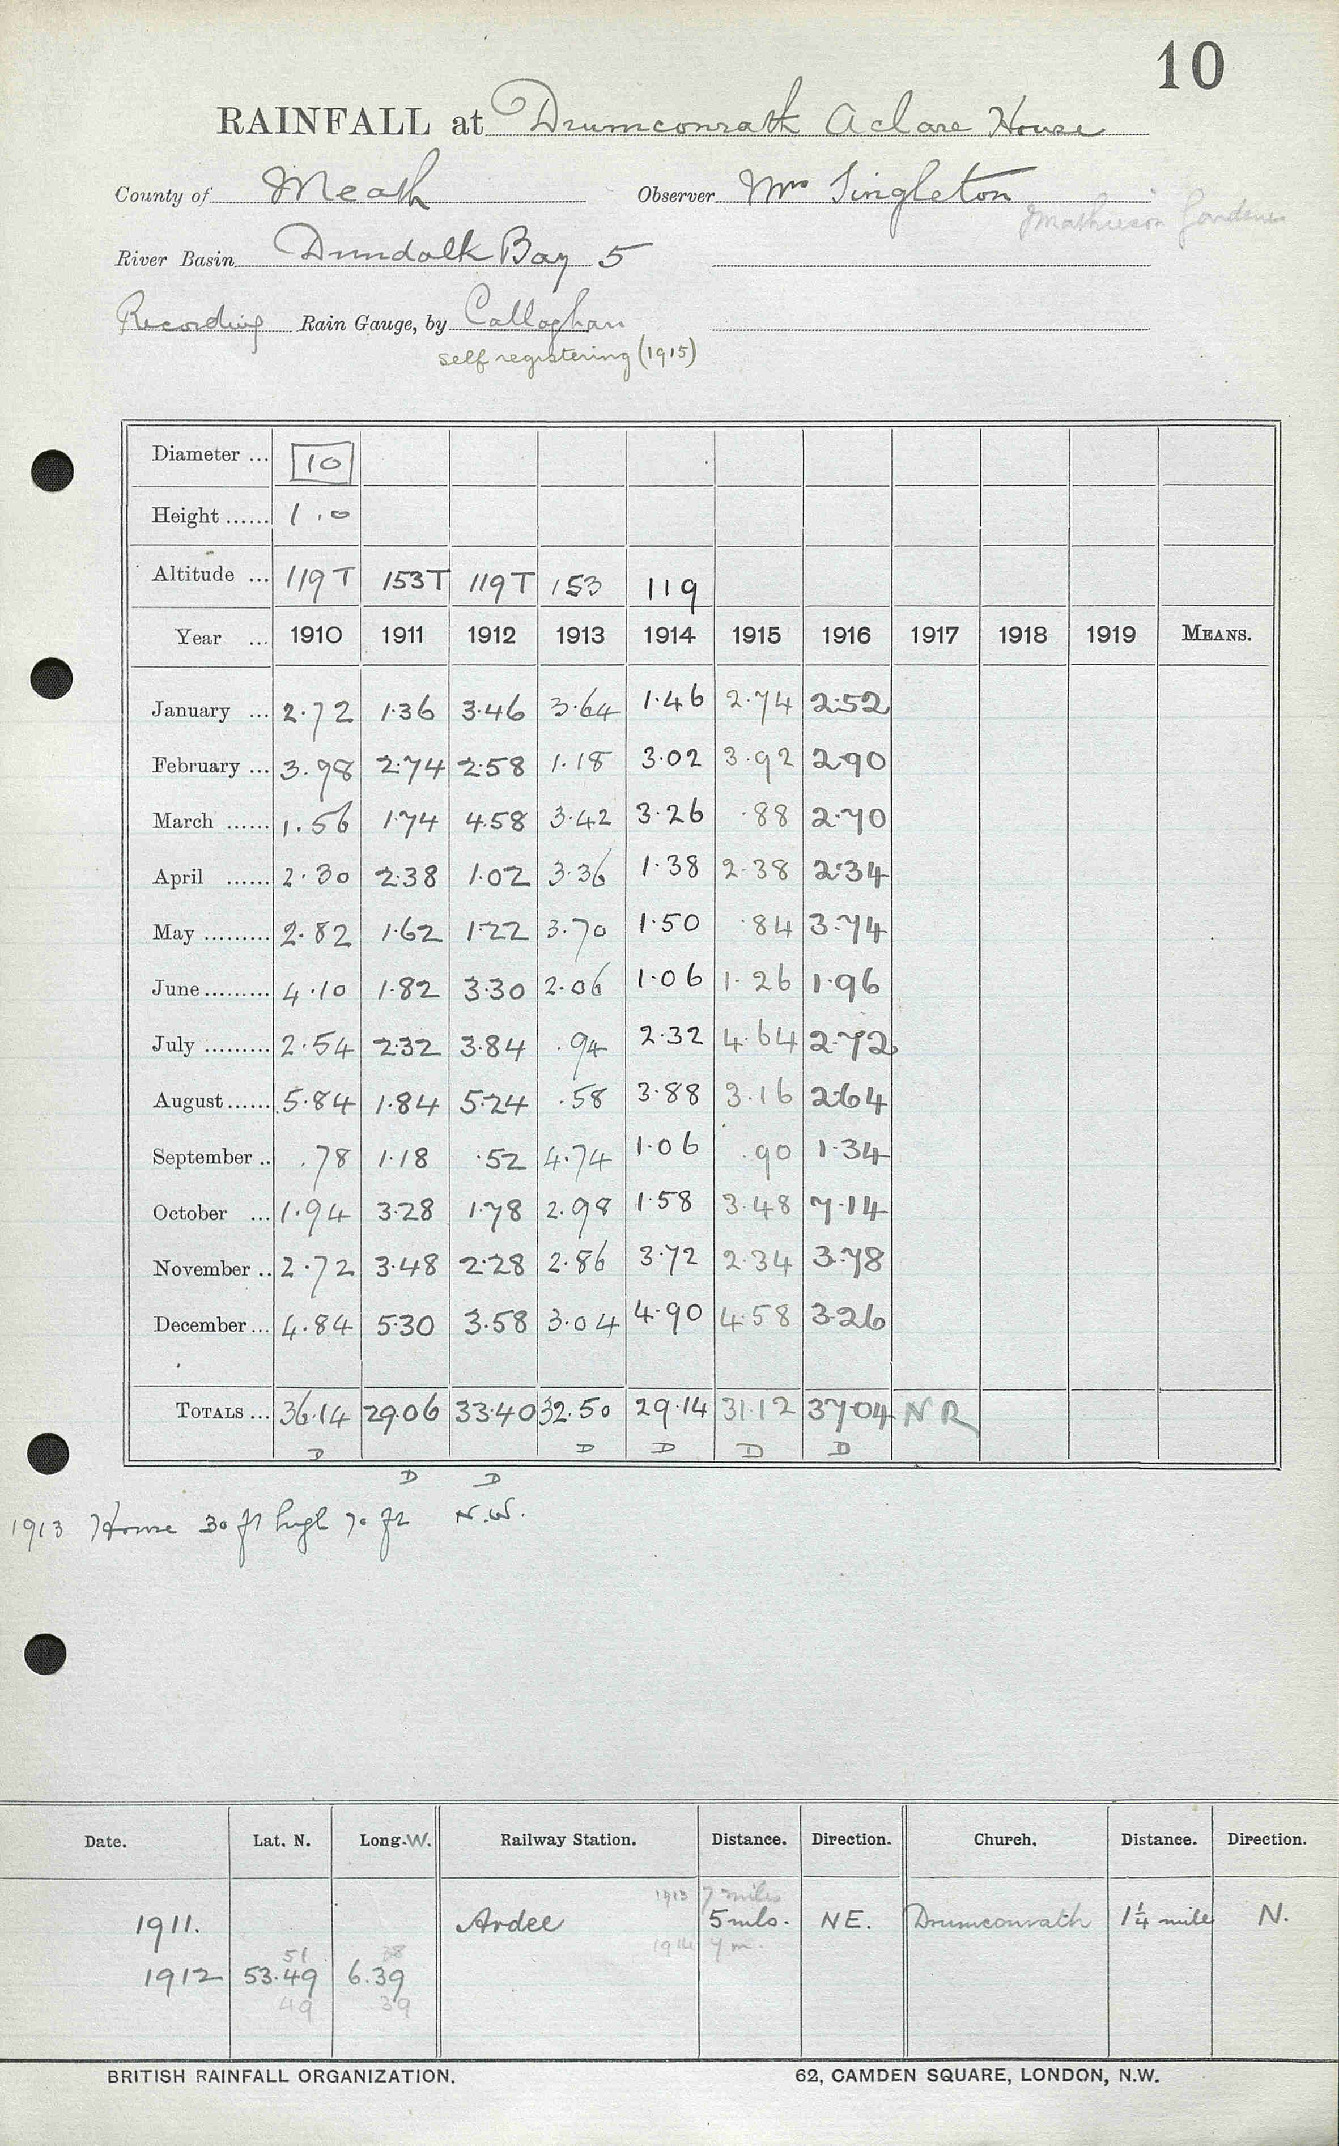 10
RAINFALL at Drumconrath Aclare House
County of Meath Observer Mrs Singleton
Mathieson Gardener
River Basin Dundalk Bay 5
Recording Rain Gauge, by Callaghan
self registering (1915)
Diameter ... 10
Height ...... 1.0
Altitude ... 119T 153T 119T 153 119
Year ... 1910 1911 1912 1913 1914 1915 1916 1917 1918 1919 MEANS.
January ... 2.72 1.36 3.46 3.64 1.46 2.74 2.52
February ... 3.98 2.74 2.58 1.18 3.02 3.92 2.90
March ...... 1.56 1.74 4.58 3.42 3.26 .88 2.70
April ...... 2.30 2.38 1.02 3.36 1.38 2.38 2.34
May ......... 2.82 1.62 1.22 3.70 1.50 .84 3.74
June ......... 4.10 1.82 3.30 2.06 1.06 1.26 1.96
July ......... 2.54 2.32 3.84 .94 2.32 4.64 2.72
August ...... 5.84 1.84 5.24 .58 3.88 3.16 2.64
September .. .78 1.18 .52 4.74 1.06 .90 1.34
October ... 1.94 3.28 1.78 2.98 1.58 3.48 7.14
November .. 2.72 3.48 2.28 2.86 3.72 2.34 3.78
December ... 4.84 5.30 3.58 3.04 4.90 4.58 3.26
TOTALS ... 36.14 29.06 33.40 32.50 29.14 31.12 37.04 NR
D D D D D
D D
1913 House 30 ft high 70 ft N.W.
Date. Lat. N. Long. W. Railway Station. Distance. Direction. Church. Distance. Direction.
1913 7 miles
1911. Ardee 5 mls. NE. Drumconrath 1¼ mile N.
1914 7 m.
51 38
1912 53.49 6.39
49 39
BRITISH RAINFALL ORGANIZATION. 62, CAMDEN SQUARE, LONDON, N.W.